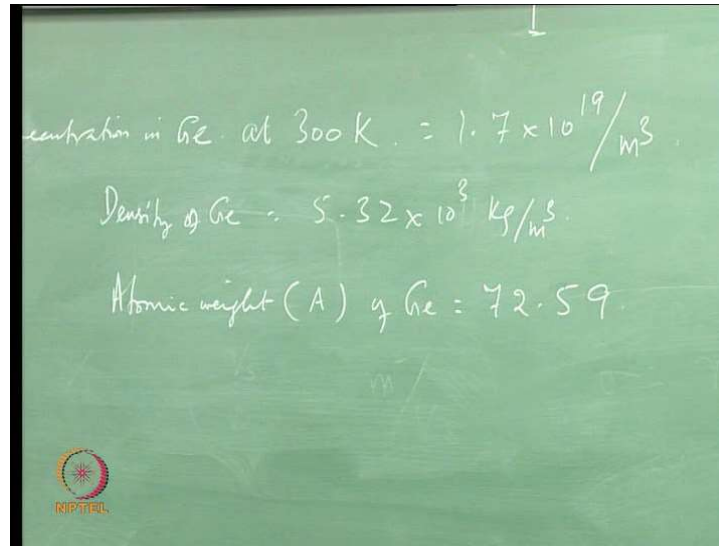 centration in Ge. at 300 K. = 1.7 x 10^19/m^3.
Density of Ge = 5.32 x 10^3 Kg/m^3.
Atomic weight (A) of Ge = 72.59.
NPTEL